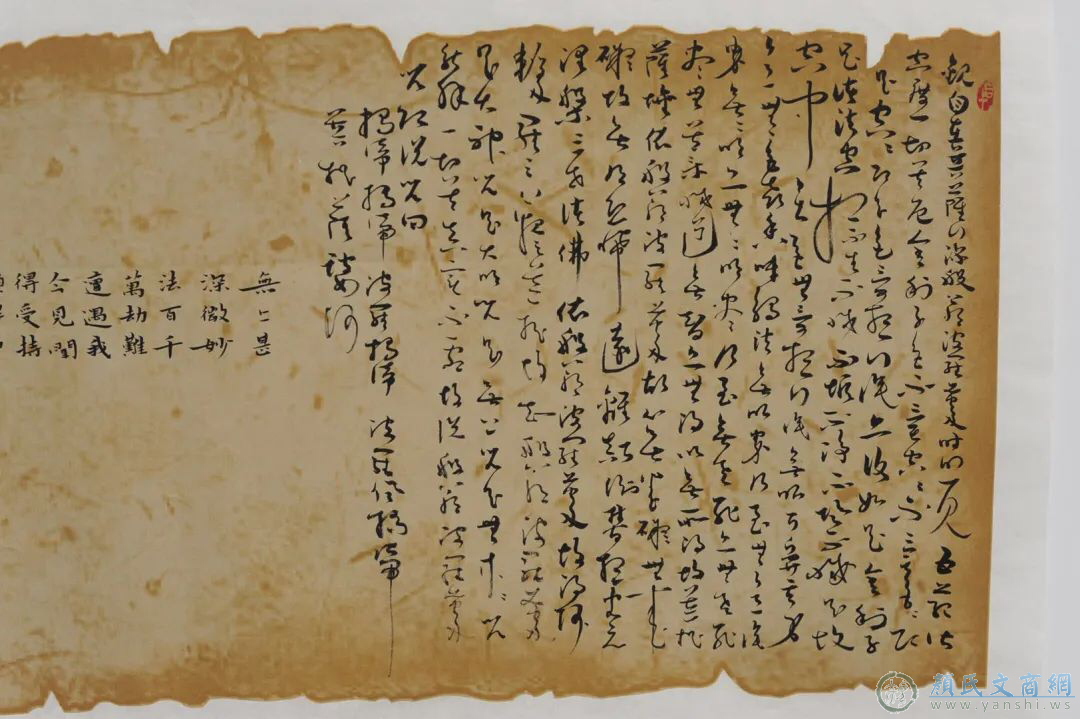 觀自在菩薩行深般若波羅蜜多時照見五蘊皆
空度一切苦厄舍利子色不異空空不異色色即
是空空即是色受想行識亦復如是舍利子
是諸法空相不生不滅不垢不淨不增不減是故
空中無色無受想行識無眼耳鼻舌身
意無色聲香味觸法無眼界乃至無意識
界無無明亦無無明盡乃至無老死亦無老死
盡無苦集滅道無智亦無得以無所得故菩提
薩埵依般若波羅蜜多故心無罣礙無罣
礙故無有恐怖遠離顛倒夢想究竟
涅槃三世諸佛依般若波羅蜜多故得阿
耨多羅三藐三菩提故知般若波羅蜜多
是大神咒是大明咒是無上咒是無等等咒
能除一切苦真實不虛故說般若波羅蜜多
咒即說咒曰
揭諦揭諦 波羅揭諦 波羅僧揭諦
菩提薩婆訶
無上甚
深微妙
法百千
萬劫難
遭遇我
今見聞
得受持
顏氏文商網
www.yanshi.ws